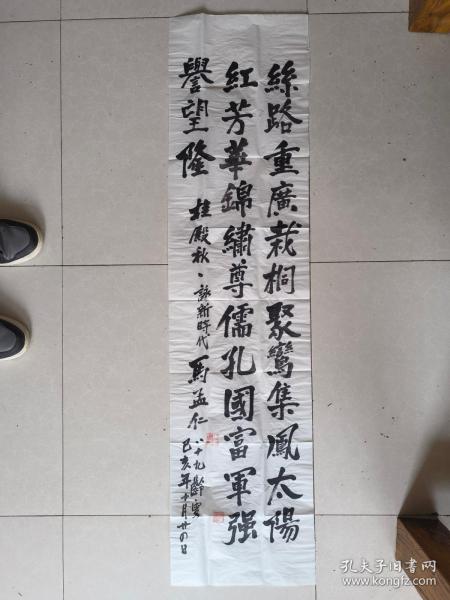 絲路重廣栽桐聚鸞集鳳太陽
紅芳華錦繡尊儒孔國富軍强
譽望隆 桂殿秋、詠新時代 馬孟仁
八十九齡
己亥年十月廿四日
孔夫子旧书网
www.kongfz.com